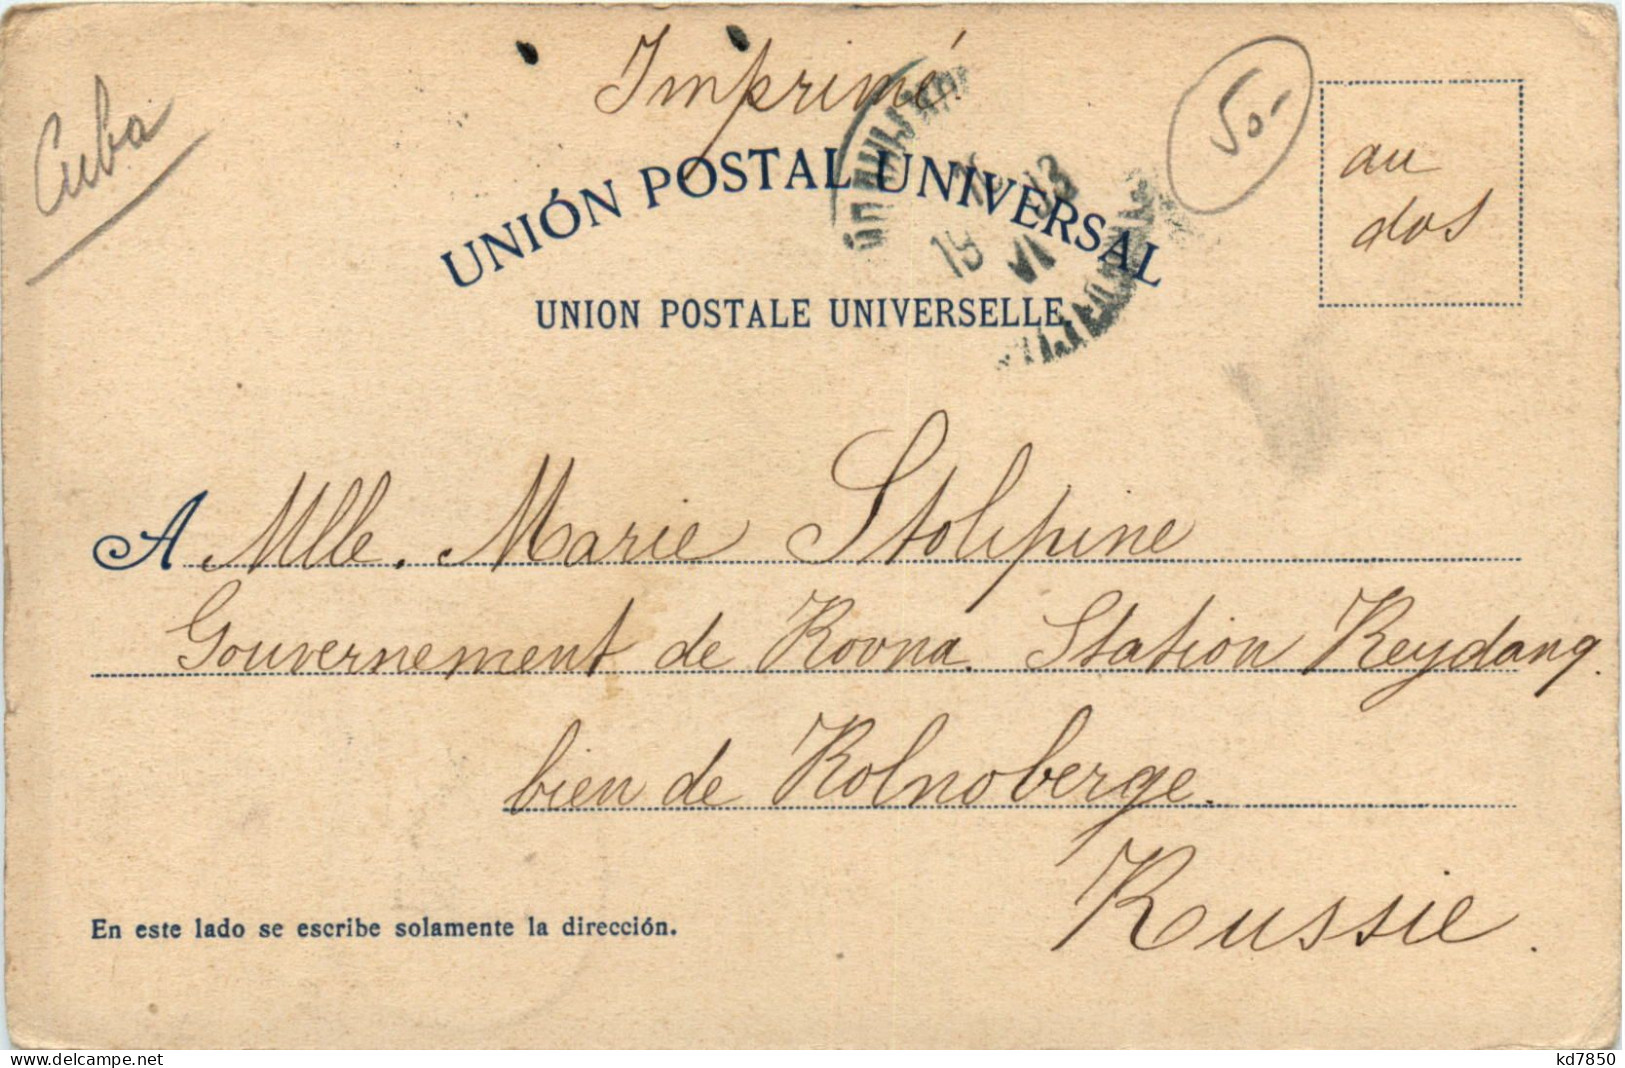 Imprimé.
Cuba
50-
au
dos
UNIÓN POSTAL UNIVERSAL
UNION POSTALE UNIVERSELLE.
A Mlle. Marie Stolipine
Gouvernement de Kovna. Station Keydany.
bien de Kolnoberge.
Russie.
En este lado se escribe solamente la dirección.
delcampe.net
kd7850